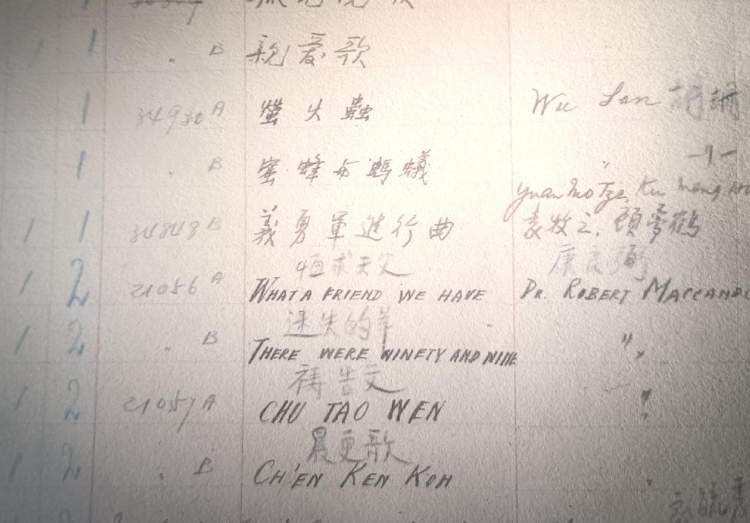 1 1 . B 親愛歌
1 34930 A 螢火蟲 Wu San 胡珊
1 . B 蜜蜂与螞蟻 " —〃—
Yuan Mo Tze, Ku Meng
1 1 34848 B 義勇軍進行曲 袁牧之, 顾夢鶴
恒求天父 康
1 2 21056 A WHAT A FRIEND WE HAVE DR. ROBERT MACCAND
迷失的羊
1 2 . B THERE WERE NINETY AND NINE "
禱告文
1 2 21057 A CHU TAO WEN "
晨更歌
1 2 . B CH'EN KEN KOH